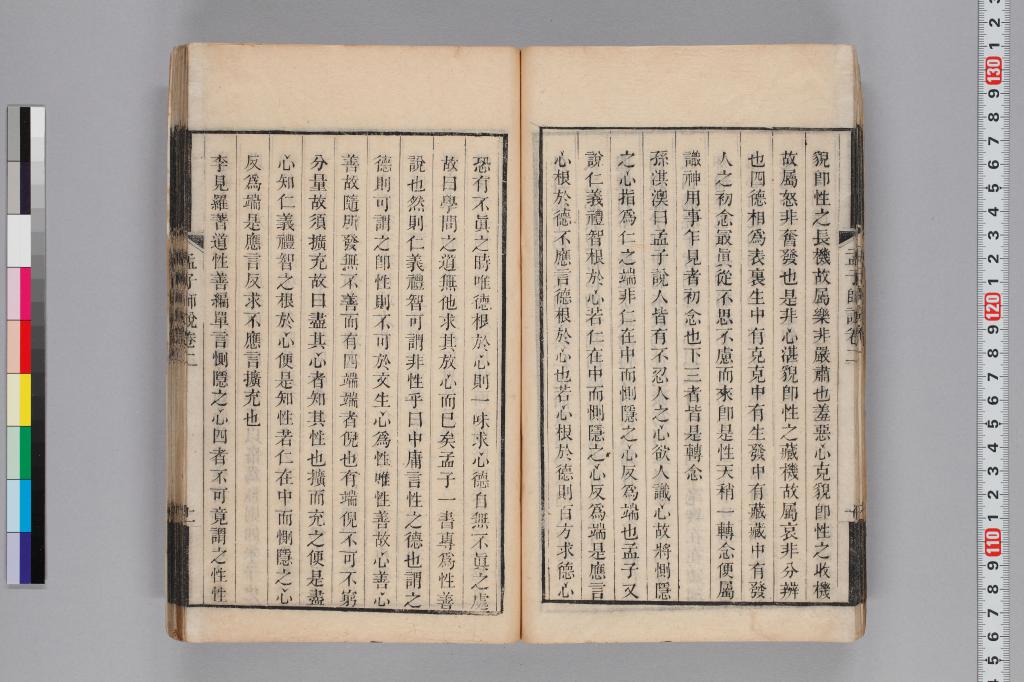 貌卽性之長機故屬樂非嚴肅也羞惡心克貌卽性之收機
故屬怒非奮發也是非心湛貌卽性之藏機故屬哀非分辨
也四德相爲表裏生中有克克中有生發中有藏藏中有發
人之初念最眞從不思不慮而來卽是性天稍一轉念便屬
識神用事乍見者初念也下三者皆是轉念
孫淇澳曰孟子說人皆有不忍人之心欲人識心故將惻隱
之心指爲仁之端非仁在中而惻隱之心反爲端也孟子又
說仁義禮智根於心若仁在中而惻隱之心反爲端是應言
心根於德不應言德根於心也若心根於德則百方求德心
恐有不眞之時唯德根於心則一味求心德自無不眞之處
故曰學問之道無他求其放心而已矣孟子一書專爲性善
說也然則仁義禮智可謂非性乎曰中庸言性之德也謂之
德則可謂之卽性則不可於文生心爲性唯性善故心善心
善故隨所發無不善而有四端端者倪也有端倪不可不窮
分量故須擴充故曰盡其心者知其性也擴而充之便是盡
心知仁義禮智之根於心便是知性若仁在中而惻隱之心
反爲端是應言反求不應言擴充也
李見羅著道性善編單言惻隱之心四者不可竟謂之性性
孟子師說卷二